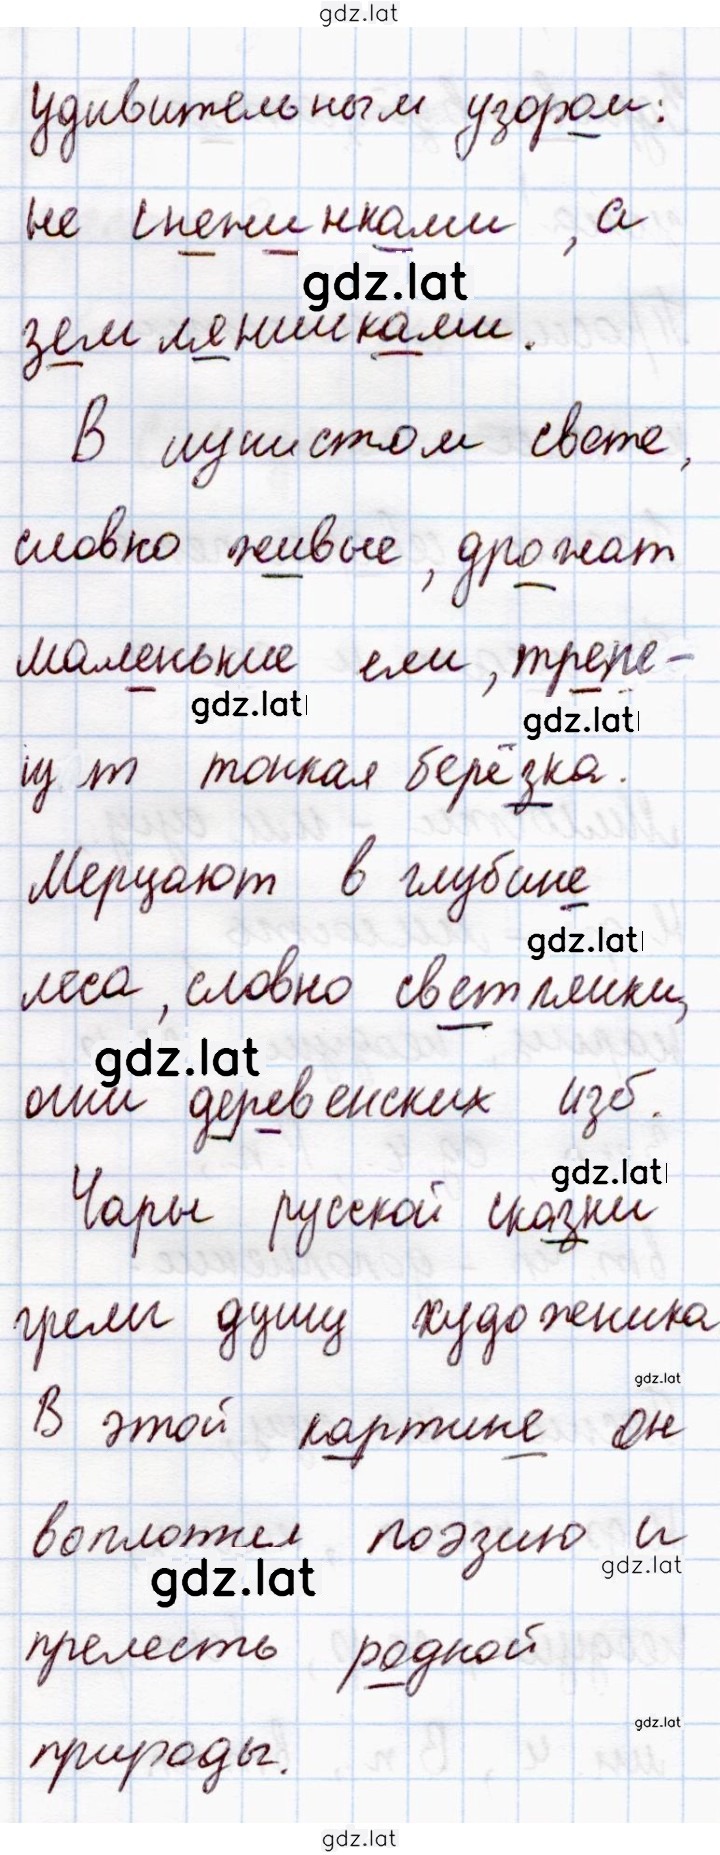 gdz.lat
удивительным узором:
не снежинками, а
gdz.lat
земляничками.
В лучистом свете,
словно живые, дрожат
маленькие ели, трепе-
gdz.lat
gdz.lat
щут тонкая берёзка.
Мерцают в глубине
gdz.lat
леса, словно светлячки,
gdz.lat
огни деревенских изб.
gdz.lat
Чары русской сказки
грели душу художника
gdz.lat
В этой картине он
воплотил поэзию и
gdz.lat
gdz.lat
прелесть родной
gdz.lat
природы.
gdz.lat